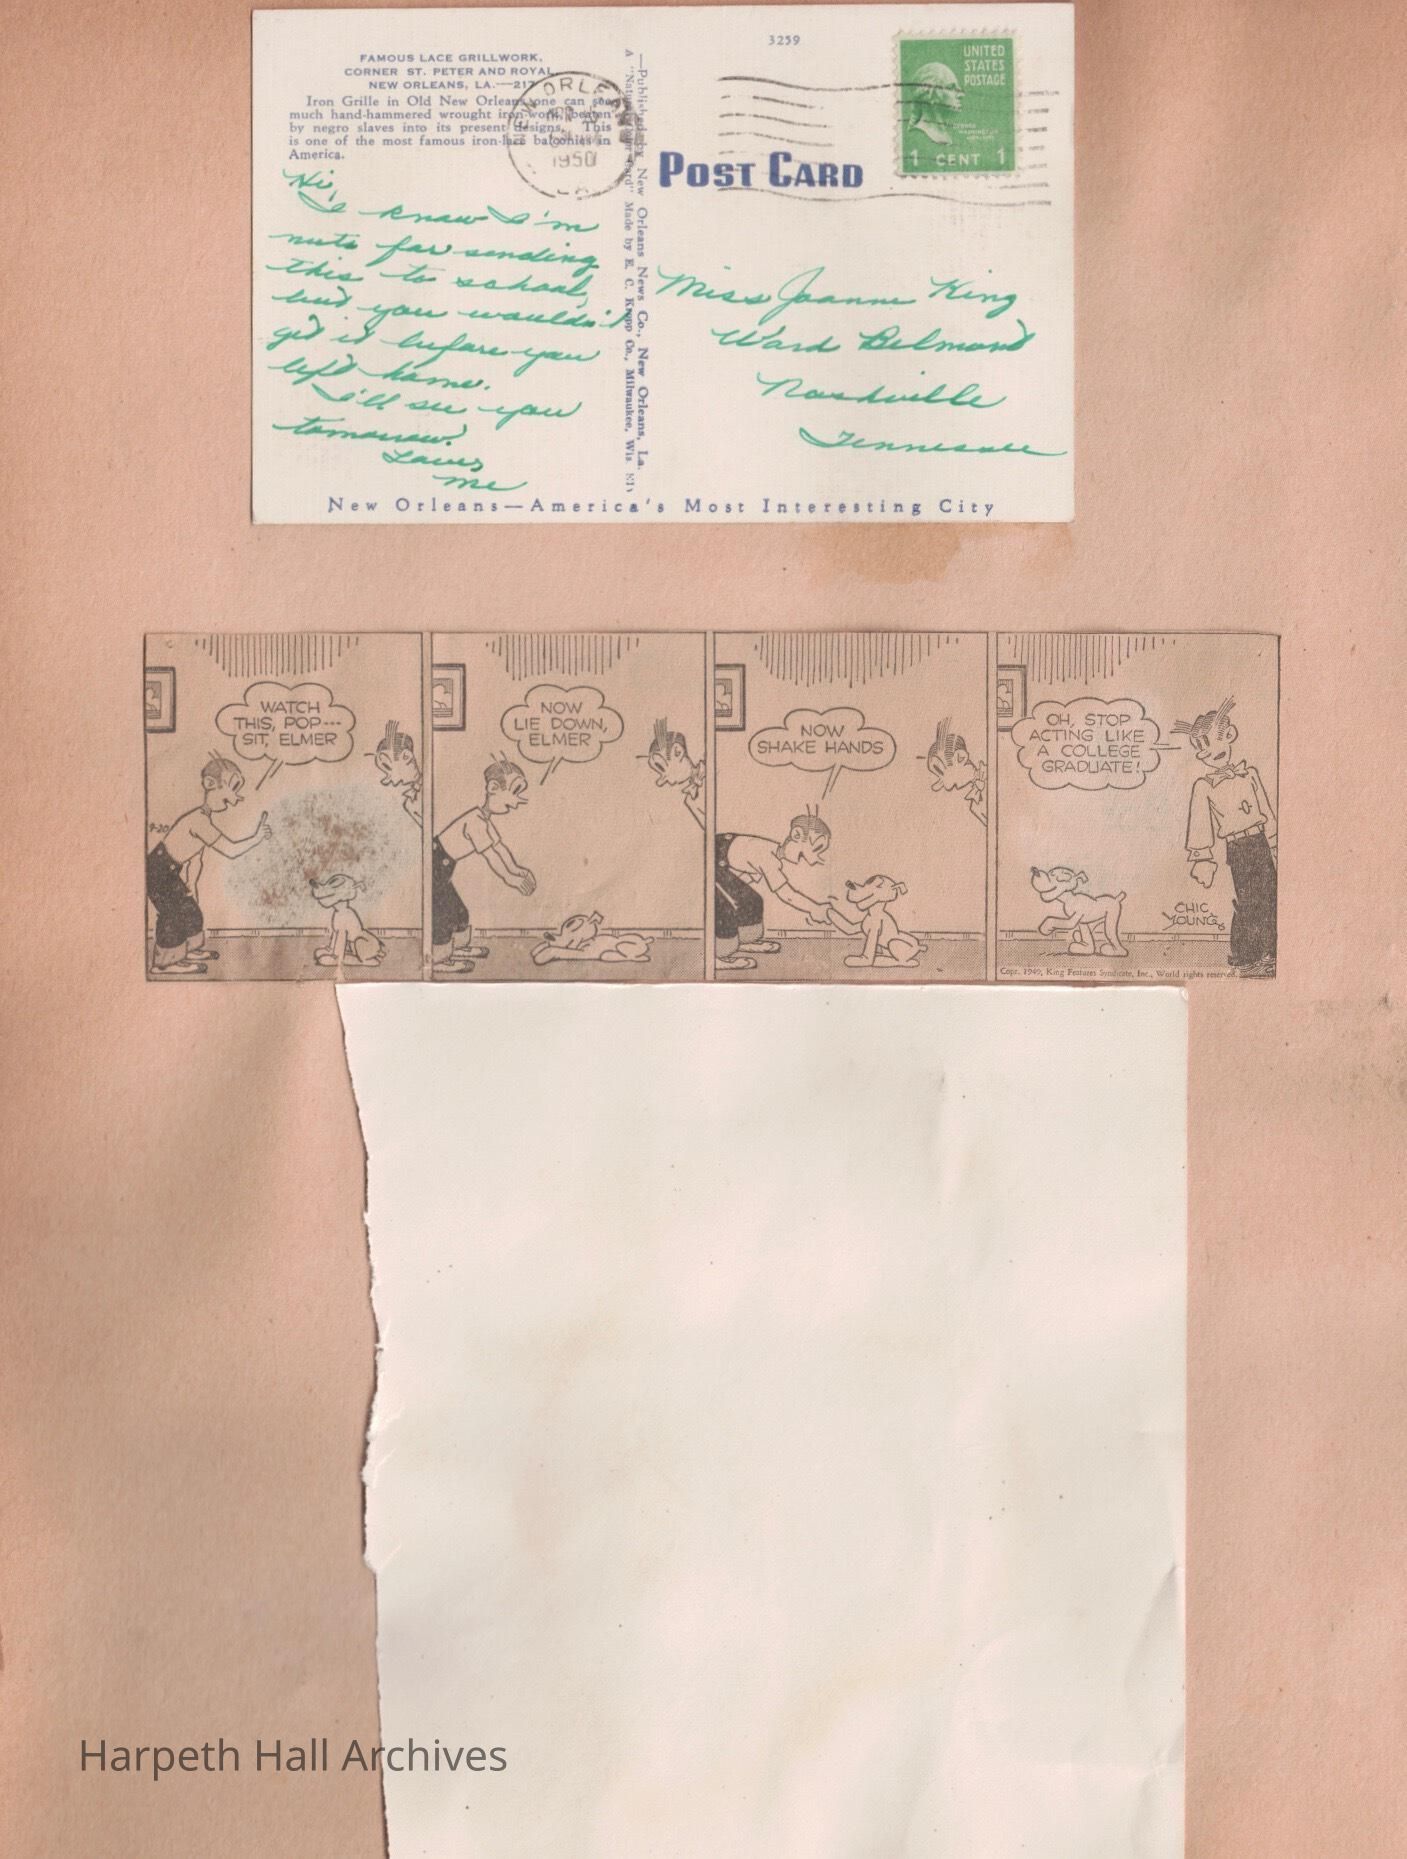 3259
UNITED
STATES
POSTAGE
1 CENT 1
FAMOUS LACE GRILLWORK,
CORNER ST. PETER AND ROYAL,
NEW ORLEANS, LA.—217
Iron Grille in Old New Orleans one can see
much hand-hammered wrought iron work, beaten
by negro slaves into its present designs. This
is one of the most famous iron-lace balconies in
America.
NEW ORLEANS
1950
LA
POST CARD
Hi,
I know I'm
nuts for sending
this to school,
but you wouldn't
get it before you
left home.
I'll see you
tomorrow.
Love,
me
—Published by New Orleans News Co., New Orleans, La.
A "Natural Color Card" Made by E. C. Kropp Co., Milwaukee, Wis.
Miss Joanne King
Ward Belmont
Nashville
Tennessee
New Orleans—America's Most Interesting City
WATCH
THIS, POP---
SIT, ELMER
9-20
NOW
LIE DOWN,
ELMER
NOW
SHAKE HANDS
OH, STOP
ACTING LIKE
A COLLEGE
GRADUATE!
CHIC
YOUNG
Copr. 1949, King Features Syndicate, Inc., World rights reserved.
Harpeth Hall Archives